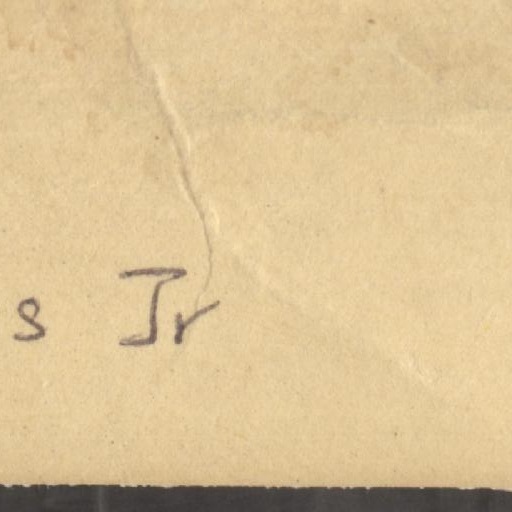 s Jr